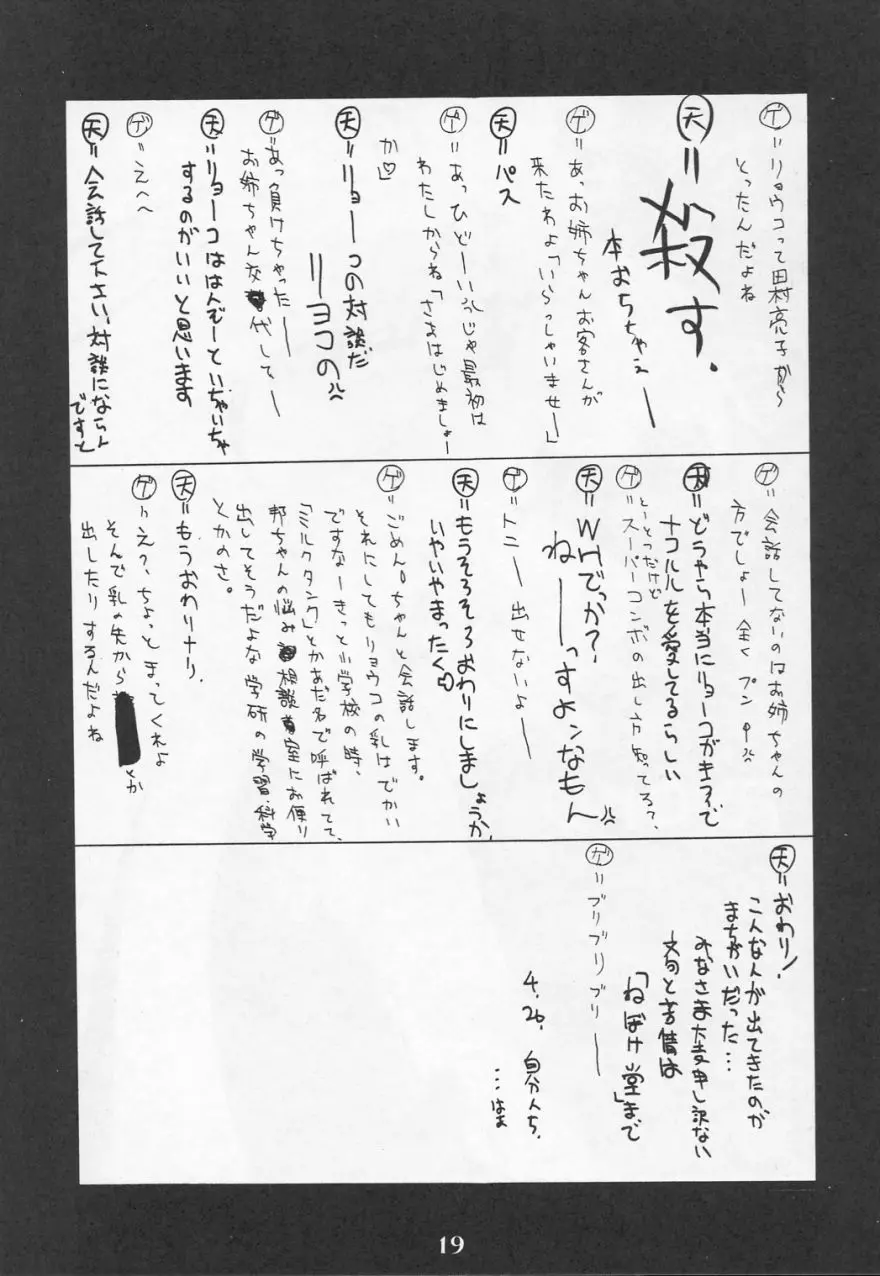 ゲ=リョウコって田村亮子から
とったんだよね
天=殺す.
本おちちゃえー
ゲ=あっお姉ちゃんお客さんが
来たわよ「いらっしゃいませー」
天=パス
ゲ=あっひどーい
じゃ最初は
わたしからね「さあはじめましょー
か♡」
天=リョーコの対談だ
リーヨコの
ゲ=あっ負けちゃったー
お姉ちゃん交代してー
天=リョーコははんぞーといちゃいちゃ
するのがいいと思います
ゲ=えへへ
天=会話して下さい、対談にならん
ですと
ゲ=会話してないのはお姉ちゃんの
方でしょー全くプンプ
天=どうやら本当にリョーコがきらいで
ナコルルを愛してるらしい
ゲ=スーパーコンボの出し方知ってる?、
とーとつだけど
天=WHでっか?、
ねーーっすよンなもん
ゲ=トニー出せないよー
天=もうそろそろおわりにしましょうか、
いやいやまったく
ゲ=ごめん。ちゃんと会話します。
それにしてもリョウコの乳はでかい
ですなーきっと小学校の時、
「ミルクタンク」とかあだ名で呼ばれてて、
邦ちゃんの悩み相談室にお便り
出してそうだよな学研の学習・科学
とかのさ。
天=もうおわりナリ.
ゲ=え?、ちょっとまってくれよ
そんで乳の先から とか
出したりするんだよね
天=おわり/.
こんな人が出てきたのが
まちがいだった…
みなさま大変申し訳ない
文句と苦情は
「ねぼけ堂」まで
ゲ=ブリブリブリー
4.26. 自分んち.
…はぁ
19